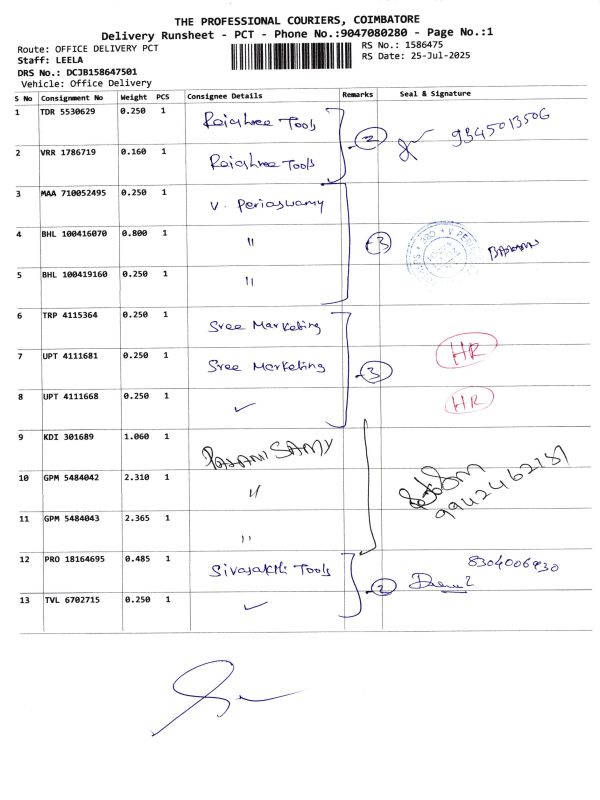 THE PROFESSIONAL COURIERS, COIMBATORE
Delivery Runsheet - PCT - Phone No.:9047080280 - Page No.:1
Route: OFFICE DELIVERY PCT
RS No.: 1586475
Staff: LEELA
RS Date: 25-Jul-2025
DRS No.: DCJB158647501
Vehicle: Office Delivery
S No Consignment No Weight PCS Consignee Details Remarks Seal & Signature
1 TDR 5530629 0.250 1 Rajshree Tools 2 9345013506
2 VRR 1786719 0.160 1 Rajshree Tools
3 MAA 710052495 0.250 1 V. Periaswamy
4 BHL 100416070 0.800 1 " 3
5 BHL 100419160 0.250 1 "
6 TRP 4115364 0.250 1 Sree Marketing
7 UPT 4111681 0.250 1 Sree Marketing 3 HR
8 UPT 4111668 0.250 1 ✓ HR
9 KDI 301689 1.060 1 PALANISAMY
10 GPM 5484042 2.310 1 " 9942462181
11 GPM 5484043 2.365 1 "
12 PRO 18164695 0.485 1 Sivasakthi Tools 2 8304006930
13 TVL 6702715 0.250 1 ✓